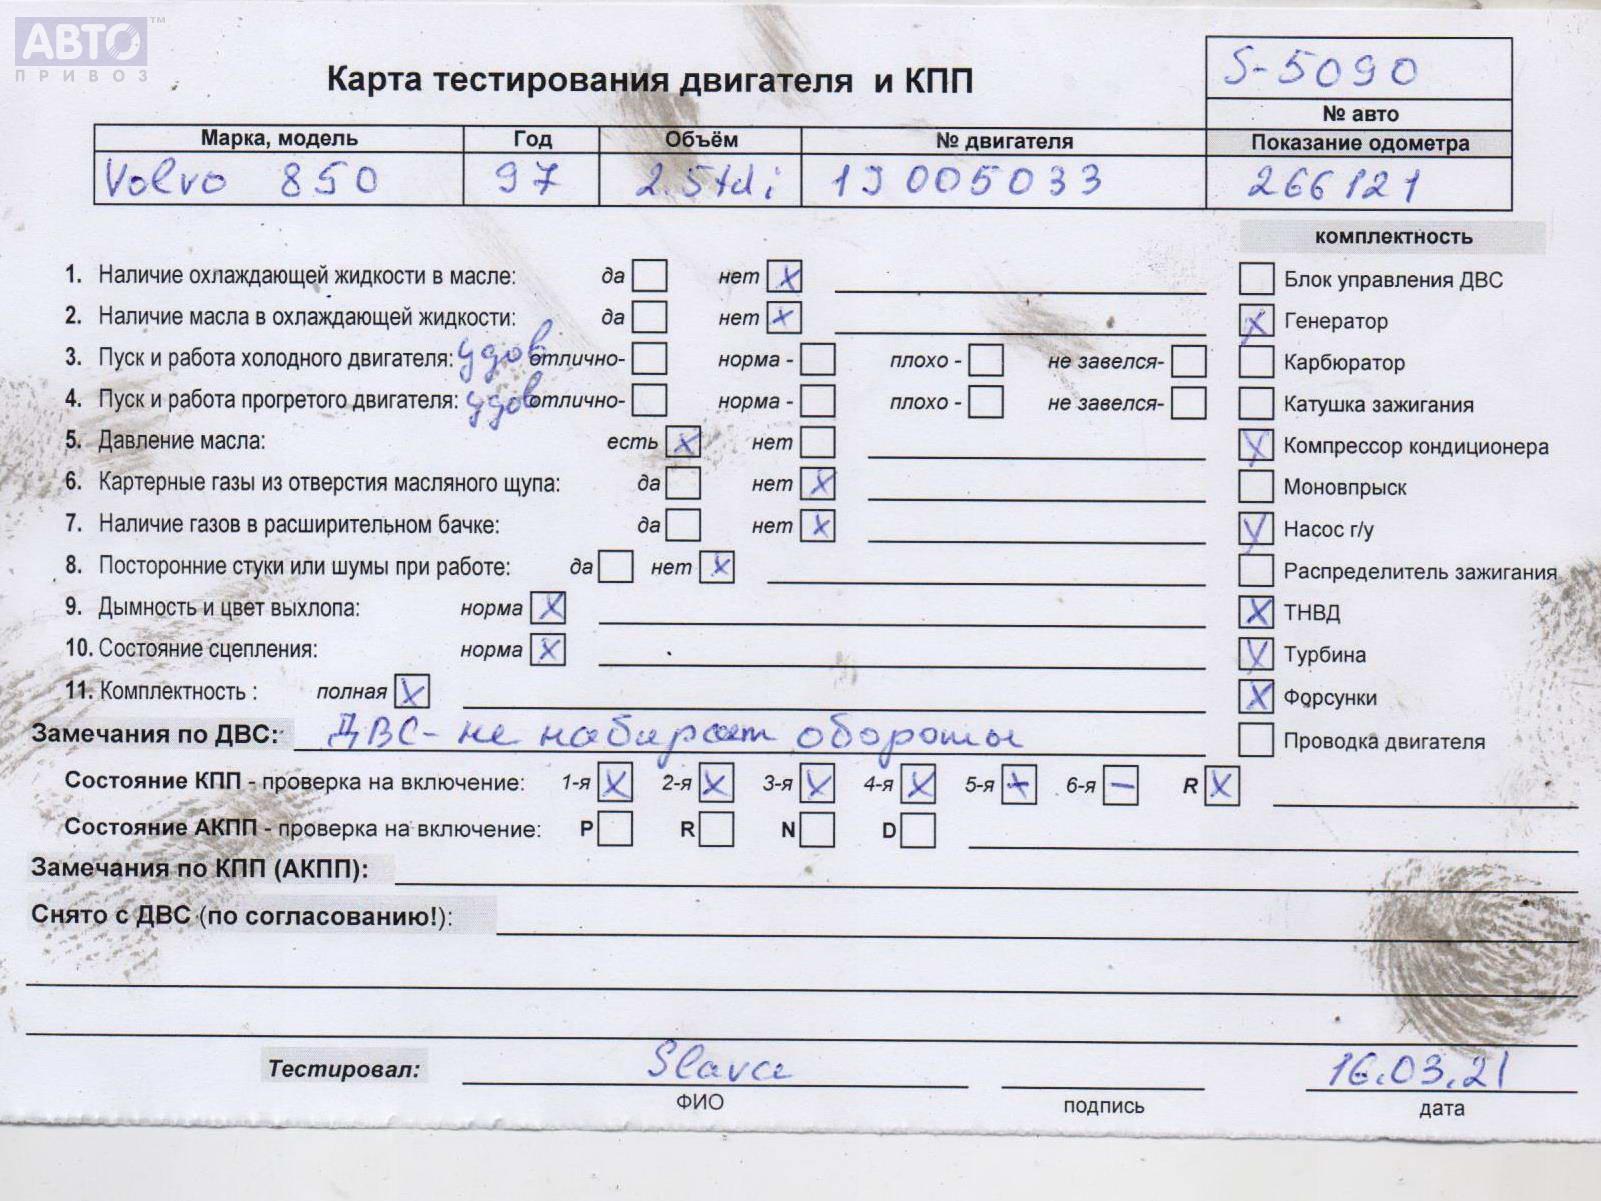 АВТО™
ПРИВОЗ
S-5090
Карта тестирования двигателя и КПП
№ авто
Марка, модель Год Объём № двигателя Показание одометра
Volvo 850 97 2.5tdi 1J005033 266121
комплектность
1. Наличие охлаждающей жидкости в масле: да нет x Блок управления ДВС
2. Наличие масла в охлаждающей жидкости: да нет x x Генератор
3. Пуск и работа холодного двигателя: удов отлично- норма - плохо - не завелся- Карбюратор
4. Пуск и работа прогретого двигателя: удов отлично- норма - плохо - не завелся- Катушка зажигания
5. Давление масла: есть x нет x Компрессор кондиционера
6. Картерные газы из отверстия масляного щупа: да нет x Моновпрыск
7. Наличие газов в расширительном бачке: да нет x x Насос г/у
8. Посторонние стуки или шумы при работе: да нет x Распределитель зажигания
9. Дымность и цвет выхлопа: норма x x ТНВД
10. Состояние сцепления: норма x x Турбина
11. Комплектность : полная x x Форсунки
Замечания по ДВС: ДВС - не набирает обороты Проводка двигателя
Состояние КПП - проверка на включение: 1-я x 2-я x 3-я x 4-я x 5-я + 6-я – R x
Состояние АКПП - проверка на включение: P R N D
Замечания по КПП (АКПП):
Снято с ДВС (по согласованию!):
Тестировал: Slava 16.03.21
ФИО подпись дата